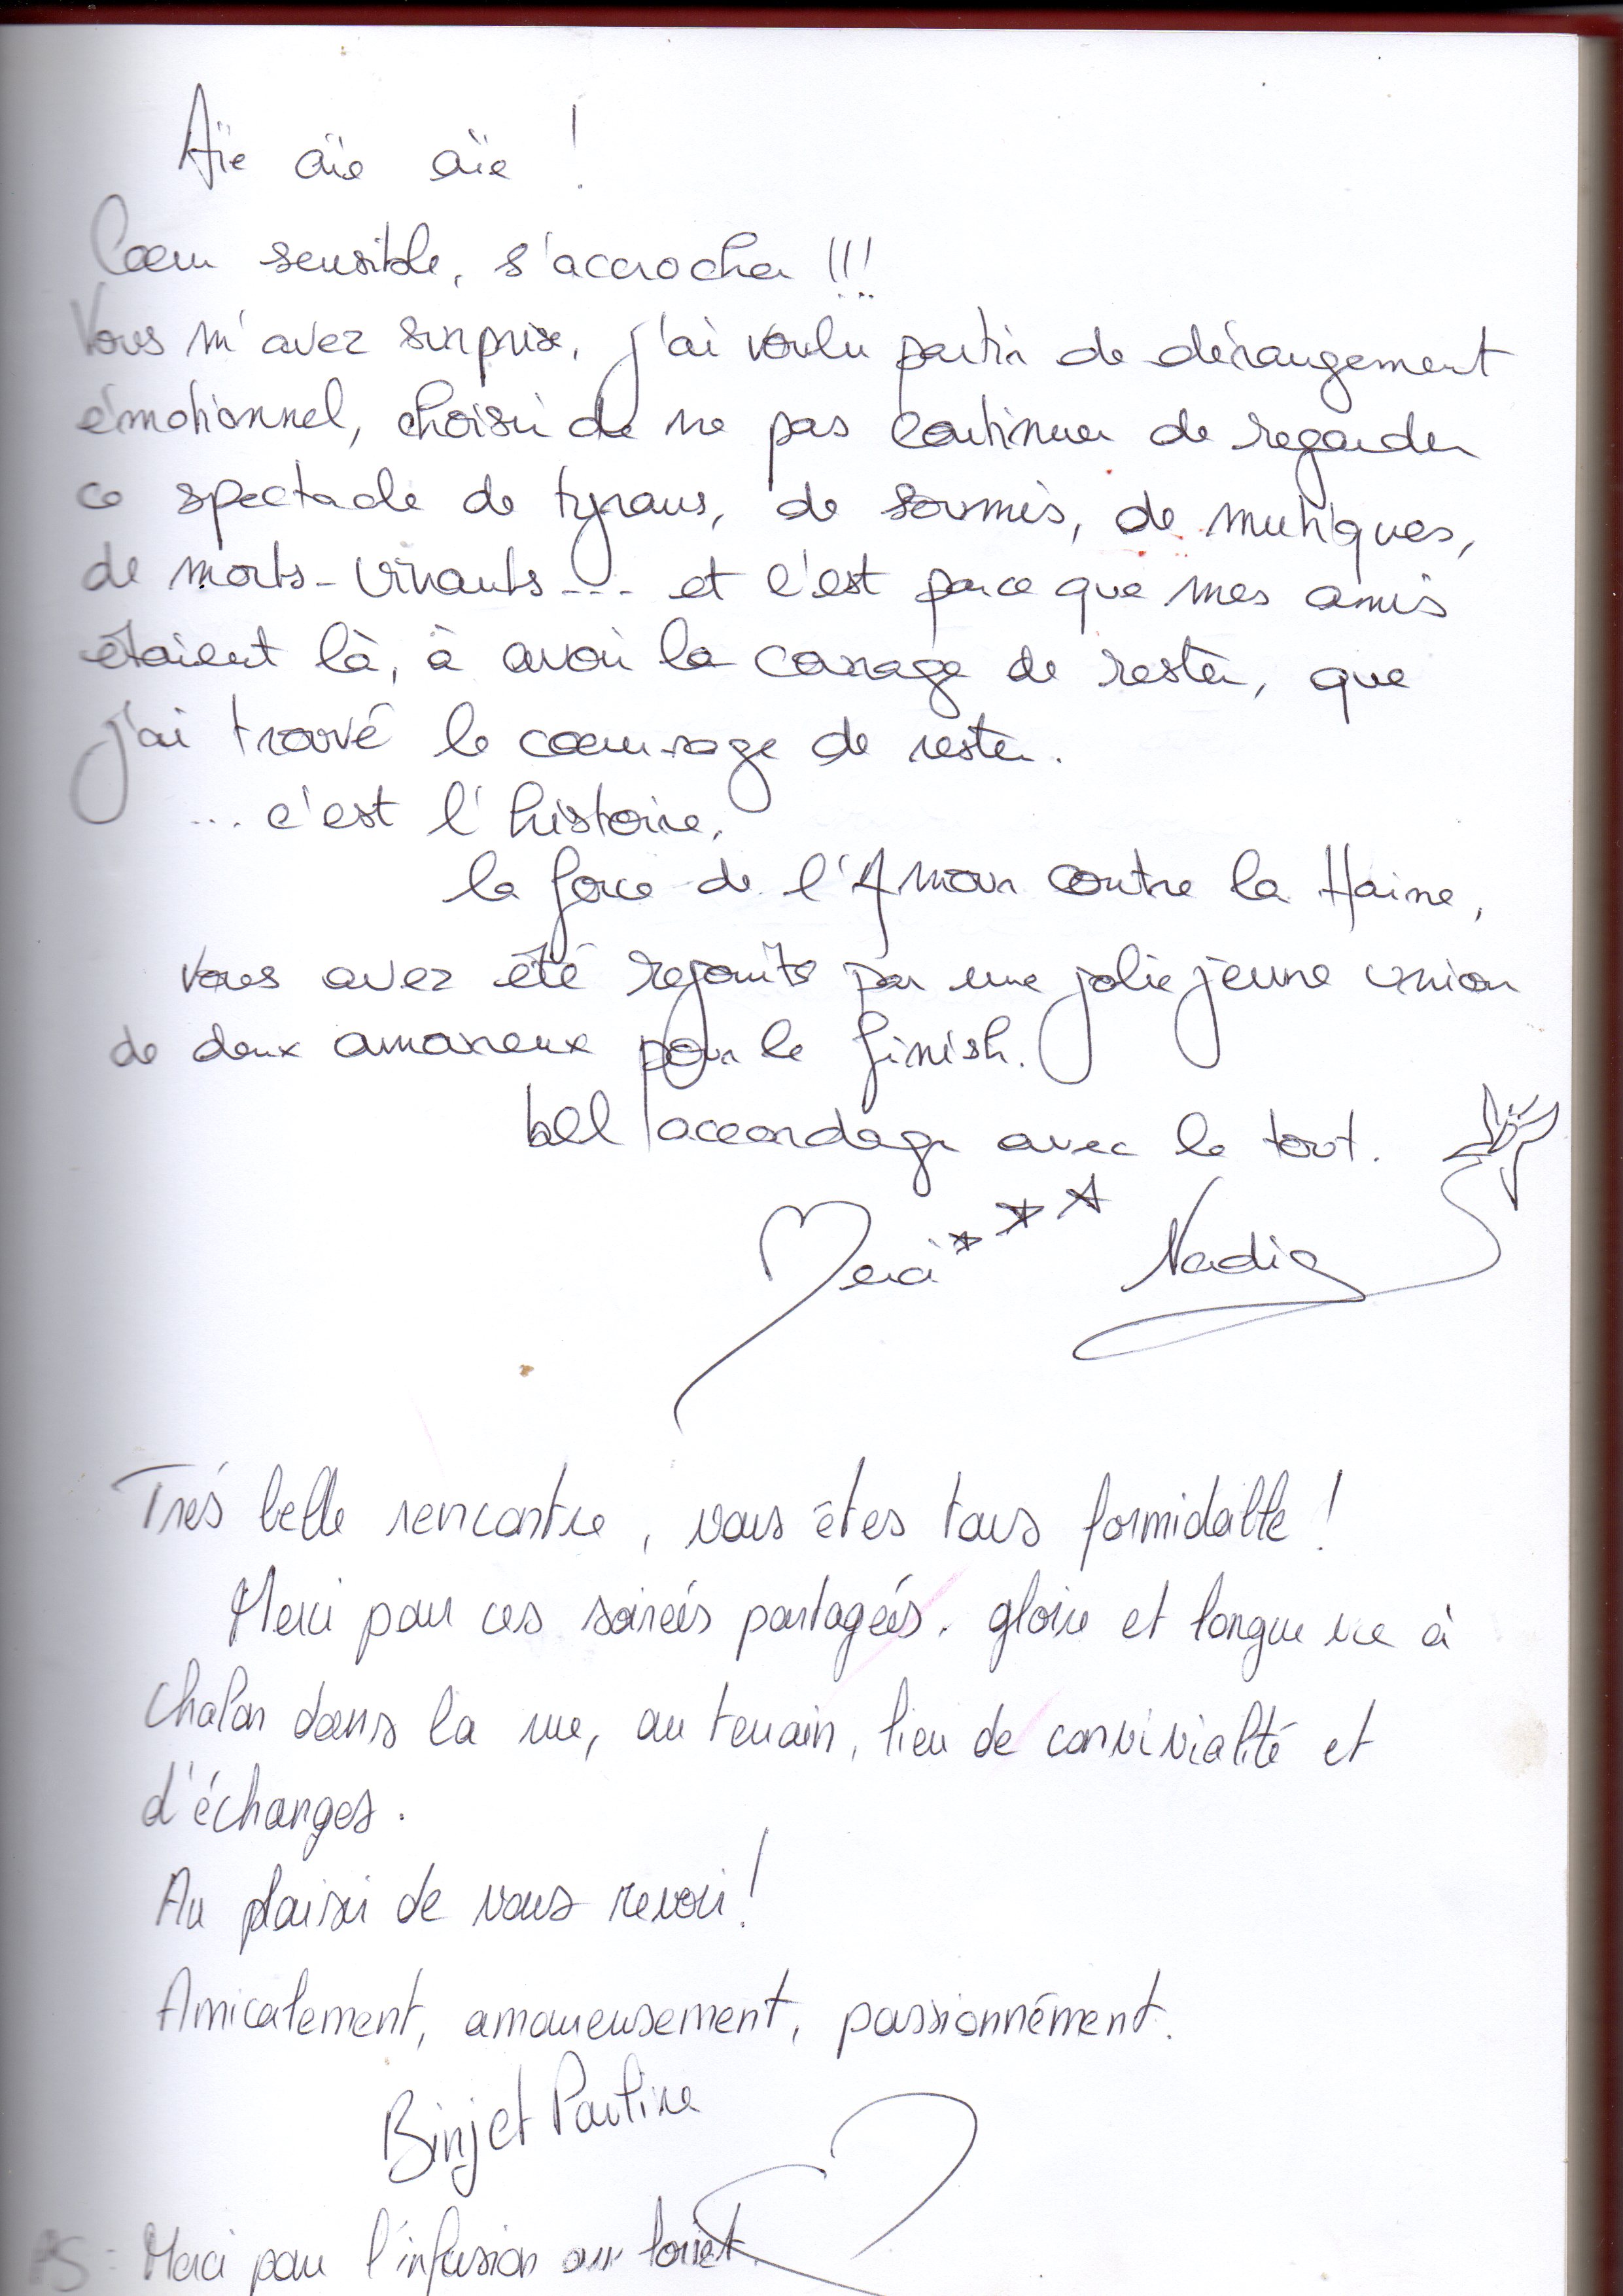 Aïe aïe aïe !
Coeur sensible, s'accrocher !!!
Vous m'avez surprise, j'ai voulu partir de dérangement
émotionnel, choisir de ne pas continuer de regarder
ce spectacle de tyrans, de soumis, de mutiques,
de morts-vivants... et c'est parce que mes amis
étaient là, à avoir le courage de rester, que
j'ai trouvé le coeurage de rester.
... c'est l'histoire,
la force de l'Amour contre la Haine,
vous avez été rejoints par une jolie jeune union
de deux amoureux pour le finish.
bel accordage avec le tout.
Merci Nadia
Très belle rencontre, vous êtes tous formidable !
Merci pour ces soirées partagées. gloire et longue vie à
Chalon dans la rue, au terrain, lieu de convivialité et
d'échanges.
Au plaisir de vous revoir !
Amicalement, amoureusement, passionnément.
Pauline
PS : Merci pour l'infusion au